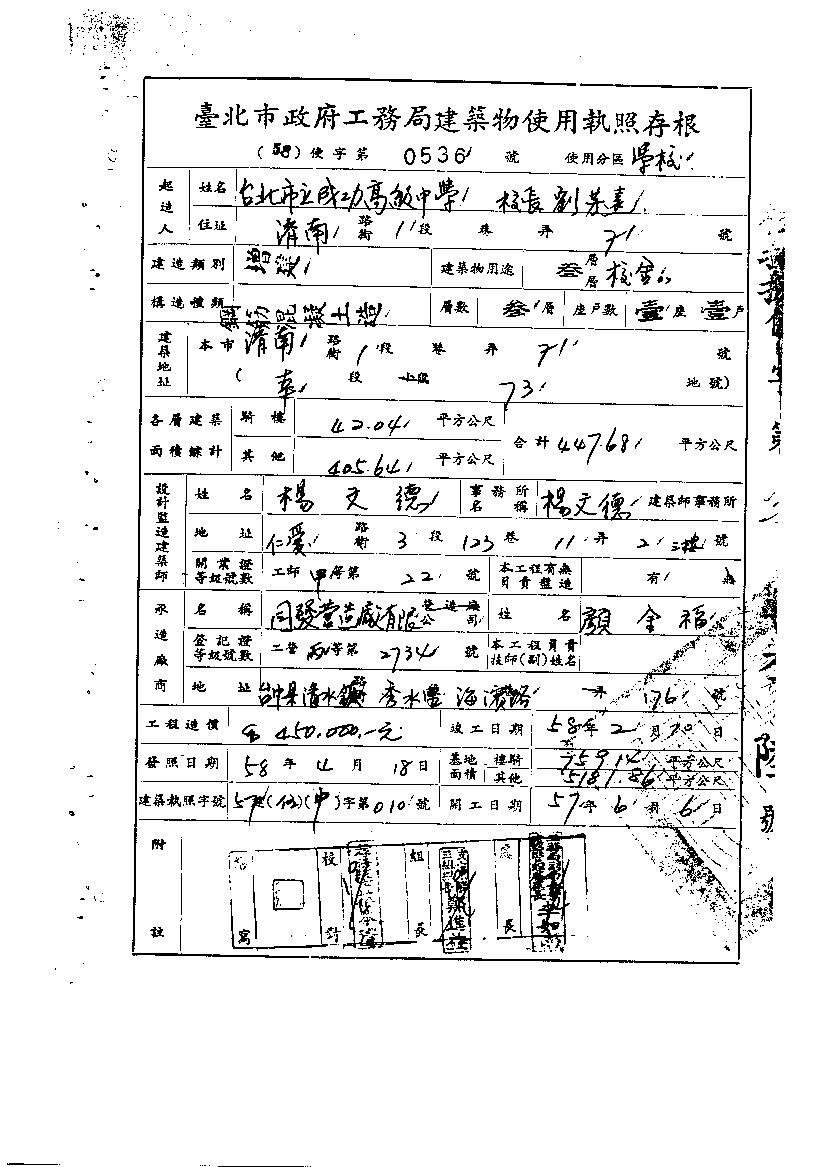 臺北市政府工務局建築物使用執照存根
(58)使字第 0536 號 使用分區 學校
起造人 姓名 台北市立成功高級中學 校長 劉芳遠
住址 濟南 路街 1 段 巷 弄 71 號
建造類別 增建 建築物用途 叁層 層 校舍
構造種類 鋼筋混凝土造 層數 叁層 座戶數 壹座 壹戶
建築地址 本市 濟南 路街 1 段 巷 弄 71 號
( 幸 段 小段 73 地號)
各層建築面積綜計 騎樓 42.04 平方公尺 合計 447.68 平方公尺
其他 405.64 平方公尺
設計監造建築師 姓名 楊文德 事務所名稱 楊文德 建築師事務所
地址 仁愛 路街 3 段 123 巷 11 弄 2 號
開業證等級號數 工師 甲 等第 22 號 本工程有無負責監造 有 無
承造廠商 名稱 同發營造廠有限公司 姓名 顏金福
登記證等級號數 工營 丙 等第 2734 號 本工程負責技師(副)姓名
地址 台中縣清水鎮 秀水里 海濱路 弄 176 號
工程造價 450,000.-元 竣工日期 58年 2 月 10 日
發照日期 58 年 4 月 18 日 基地面積 樓騎 759.14 平方公尺
其他 5181.86 平方公尺
建築執照字號 57 字第 010 號 開工日期 57 年 6 月 6 日
附註 寫 校對 組長 處長
陸 號